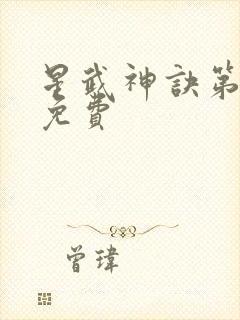 星武神訣第
免費
曾瑋